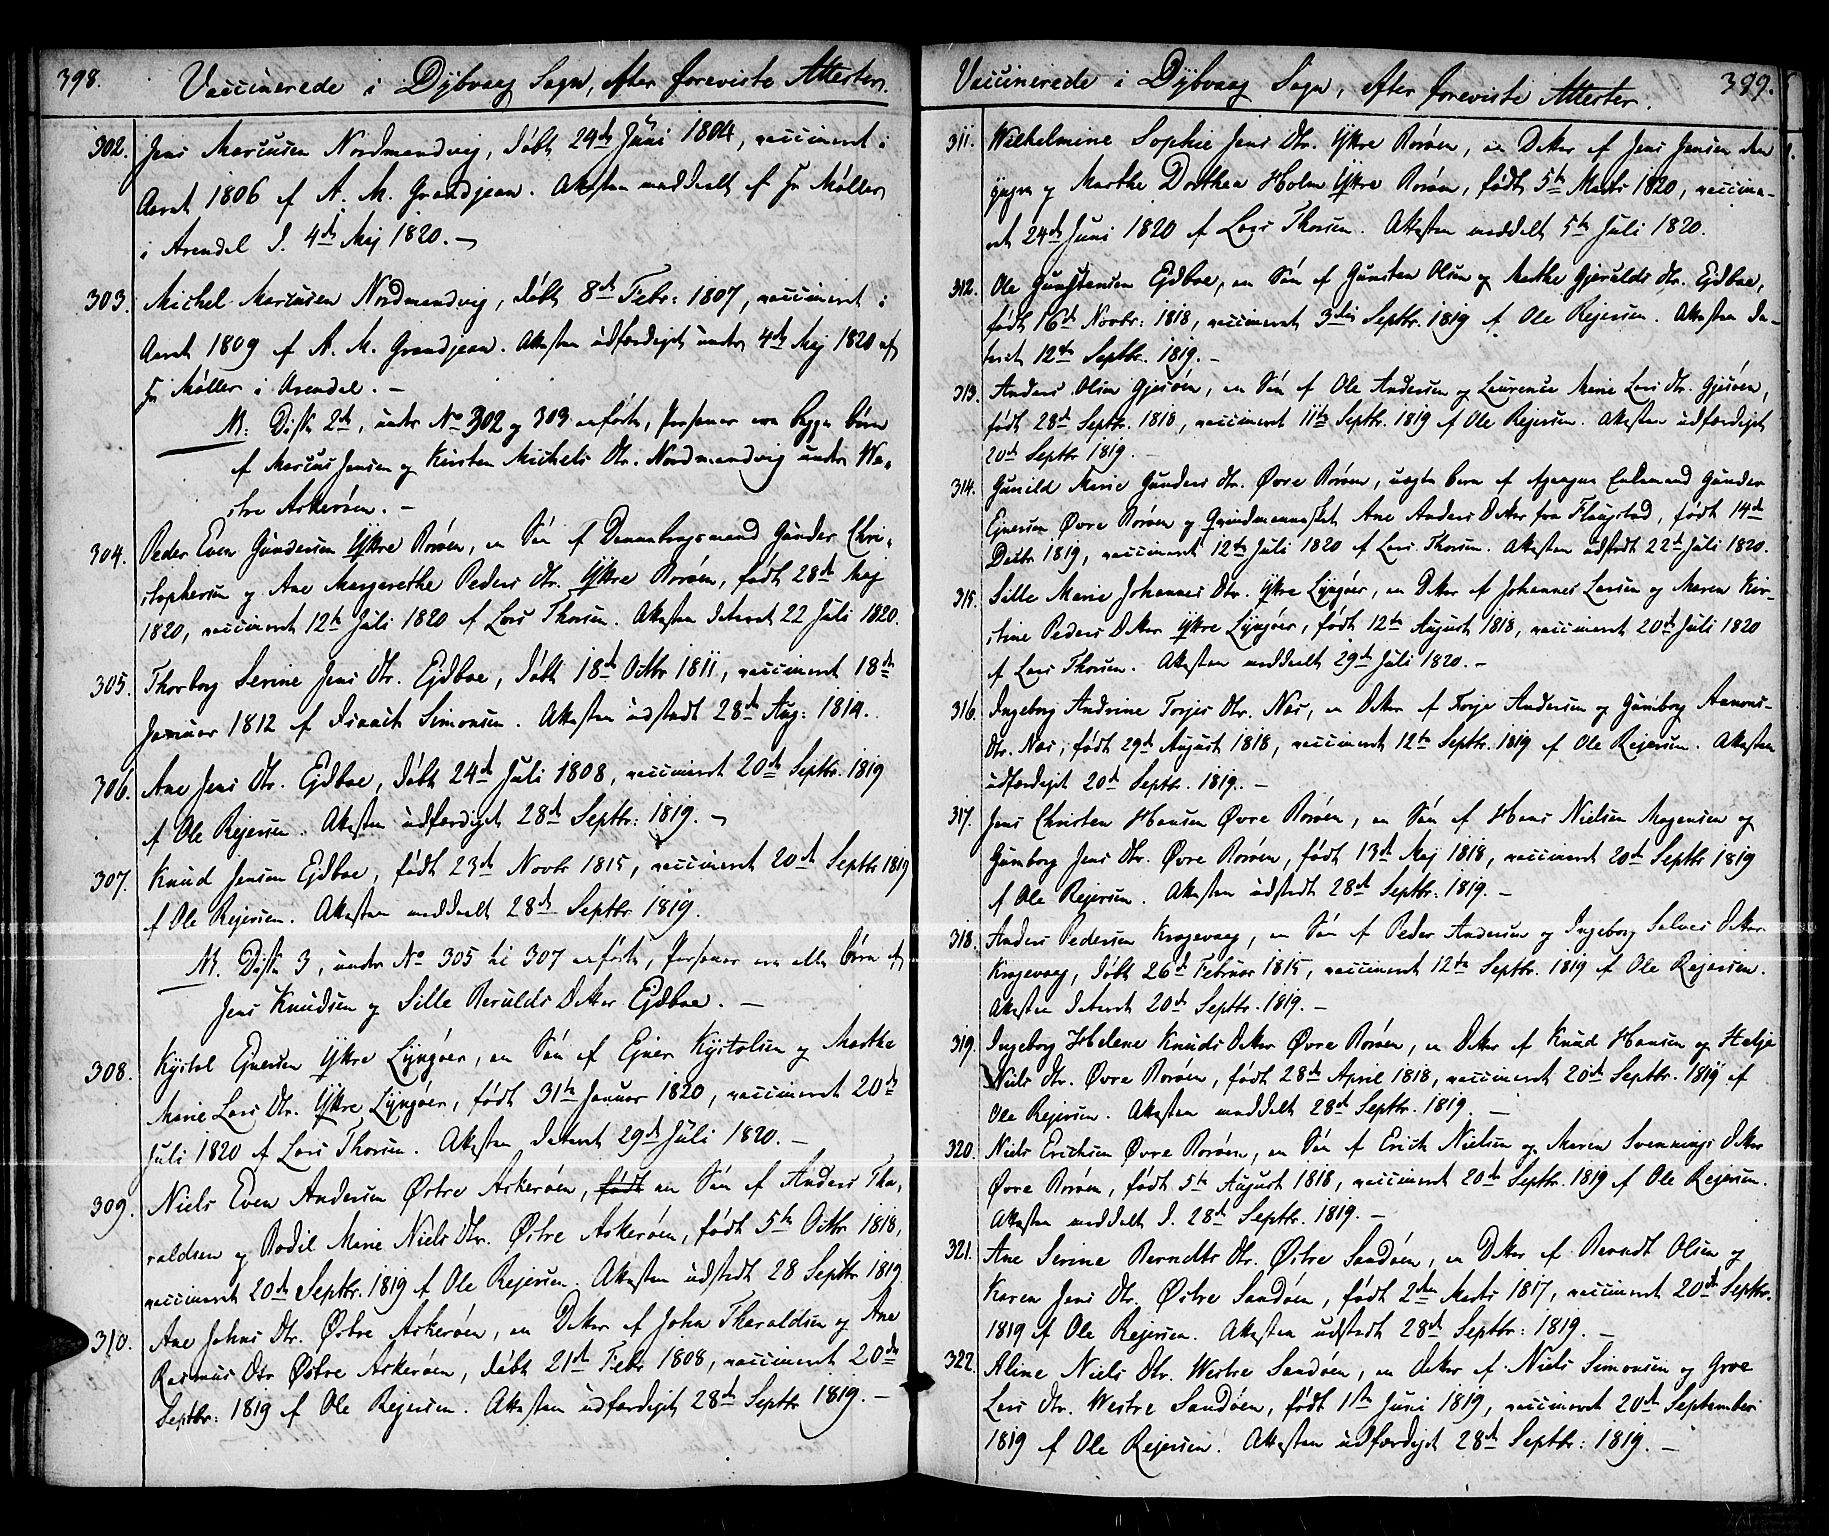 398.
Vaccinerede i Dybvaag Sogn, efter foreviste Attester.
302. Jens Marcusen Nordmandvig, døbt 24de Juni 1804, vaccineret i
Aaret 1806 af A. M. Grandjean. Attesten meddeelt af Fr Møller
i Arendal d. 4de Maj 1820. –
303. Michel Marcusen Nordmandvig, døbt 8de Febr: 1807, vaccineret i
Aaret 1809 af A. M. Grandjean. Attesten udfærdiget under 4de Maj 1820 af
Fr Møller i Arendal. –
NB: Disse 2de, under No 302 og 303 anførte, Personer ere begge børn
af Marcus Jensen og Kirsten Michels Dtr. Nordmandvig under We-
stre Askerøen. –
304. Peder Even Gundersen Ytre Borøen, en Søn af Dannebrogsmand Gunder Chri-
stophersen og Ane Margrethe Peders Dtr. Ytre Borøen, født 28de Maj
1820, vaccineret 12te Juli 1820 af Lars Thorsen. Attesten dateret 22 Juli 1820.
305. Thorborg Serine Jens Dtr. Ejdboe, døbt 18de Octbr 1811, vaccineret 18de
Januar 1812 af Isaach Simonsen. Attesten udstædt 28de Aug: 1814.
306. Ane Jens Dtr. Ejdboe, døbt 24de Juli 1808, vaccineret 20de Septbr. 1819
af Ole Rejersen. Attesten udfærdiget 28de Septbr: 1819. –
307. Knud Jensen Ejdboe, født 23de Novbr 1815, vaccineret 20de Septbr 1819
af Ole Rejersen. Attesten meddeelt 28de Septbr. 1819.
NB. Disse 3, under No 305 til 307 anførte, Personer ere alle børn af
Jens Knudsen og Sille Berulds Datter Ejdboe. –
308. Kjstol Ejversen Ytre Lyngøer, en Søn af Ejver Kjstolsen og Marthe
Marie Lars Dtr. Ytre Lyngøer, født 31te Januar 1820, vaccineret 20de
Juli 1820 af Lars Thorsen. Attesten dateret 29de Juli 1820. –
309. Niels Even Andersen Østre Askerøen, født en Søn af Anders Tha-
raldsen og Bodil Marie Niels Dtr. Østre Askerøen, født 5te Octbr 1818,
vaccineret 20de Septbr. 1819 af Ole Rejersen. Attesten udstædt 28 Septbr 1819
310. Ane Johns Dtr. Østre Askerøen, en Datter af John Tharaldsen og Ane
Rasmus Dtr Østre Askerøen, døbt 21de Febr 1808, vaccineret 20de
Septbr: 1819 af Ole Rejersen. Attesten udfærdiget 28de Septbr 1819. –
Vaccinerede i Dybvaag Sogn, efter foreviste Attester. 399.
311. Wilhelmine Sophie Jens Dtr. Ytre Borøen, en Datter af Jens Jensen den
yngre og Marthe Dorthea Holm Ytre Borøen, født 5te Marts 1820, vaccine-
ret 24de Juni 1820 af Lars Thorsen. Attesten meddelt 5te Juli 1820.
312. Ole Gunstensen Ejdboe, en Søn af Gunsten Olsen og Marthe Gjerulds Dtr. Ejdboe,
født 16de Novbr: 1818, vaccineret 3die Septbr. 1819 af Ole Rejersen. Attesten da-
teret 12te Septbr. 1819. –
313. Anders Olsen Gjesøen, en Søn af Ole Andersen og Laurence Marie Lars Dtr. Gjesøen,
født 28de Septbr. 1818, vaccineret 11te Septbr. 1819 af Ole Rejersen. Attesten udfærdiget
20de Septbr 1819.
314. Gunild Marie Gunders Dtr. Øvre Borøen, uægte barn af Enkemand Gunder
Ejversen Øvre Borøen og Qvindmennesket Ane Anders Datter fra Flaugstad, født 14de
Decbr. 1819, vaccineret 12te Juli 1820 af Lars Thorsen. Attesten udstædt 22de Juli 1820.
315. Sille Marie Johannes Dtr. Ytre Lyngøer, en Datter af Johannes Larsen og Maren Kir-
stine Peders Datter Ytre Lyngøer, født 12te August 1818, vaccineret 20de Juli 1820
af Lars Thorsen. Attesten meddeelt 29de Juli 1820. –
316. Ingeborg Andrine Torjes Dtr. Næs, en Datter af Torje Andersen og Gunborg Aanons-
Dtr. Næs, født 29de August 1818, vaccineret 12te Septbr. 1819 af Ole Rejersen. Attesten
udfærdiget 20de Septbr. 1819. –
317. Jens Christen Hansen Øvre Borøen, en Søn af Hans Nielsen Mogensen og
Gunborg Jens Dtr. Øvre Borøen, født 13de Maj 1818, vaccineret 20de Septbr 1819
af Ole Rejersen. Attesten udstædt 28de Septbr. 1819. –
318. Anders Pedersen Krogevaag, en Søn af Peder Andersen og Ingeborg Salves Datter
Krogevaag, døbt 26de Februar 1815, vaccineret 12te Septbr. 1819 af Ole Rejersen.
Attesten dateret 20de Septbr. 1819. –
319. Ingeborg Helene Knuds Datter Øvre Borøen, en Datter af Knud Hansen og Helje
Niels Dtr. Øvre Borøen, født 28de April 1818, vaccineret 20de Septbr. 1819 af
Ole Rejersen. Attesten meddelt 28de Septbr. 1819. –
320. Niels Erichsen Øvre Borøen, en Søn af Erich Nielsen og Maren Svennings Datter
Øvre Borøen, født 5te August 1818, vaccineret 20de Septbr. 1819 af Ole Rejersen.
Attesten meddelt d. 28de Septbr. 1819. –
321. Ane Serine Berndts Dtr. Østre Sandøen, en Datter af Berndt Olsen og
Karen Jens Dtr. Østre Sandøen, født 2den Marts 1817, vaccineret 20de Septbr.
1819 af Ole Rejersen. Attesten udstædt 28de Septbr: 1819. –
322. Aline Niels Dtr. Westre Sandøen, en Datter af Niels Simonsen og Groe
Lars Dtr. Westre Sandøen, født 1ste Juni 1819, vaccineret 20de September
1819 af Ole Rejersen. Attesten udfærdiget 28de Septbr: 1819. –